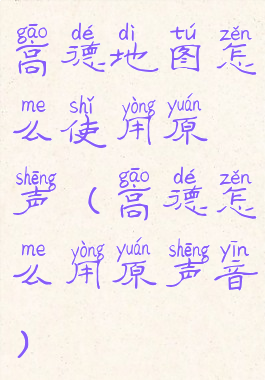 gāo dé dì tú zěn
高德地图怎
me shǐ yòng yuán
么使用原
shēng gāo dé zěn
声（高德怎
me yòng yuán shēng yīn
么用原声音
）